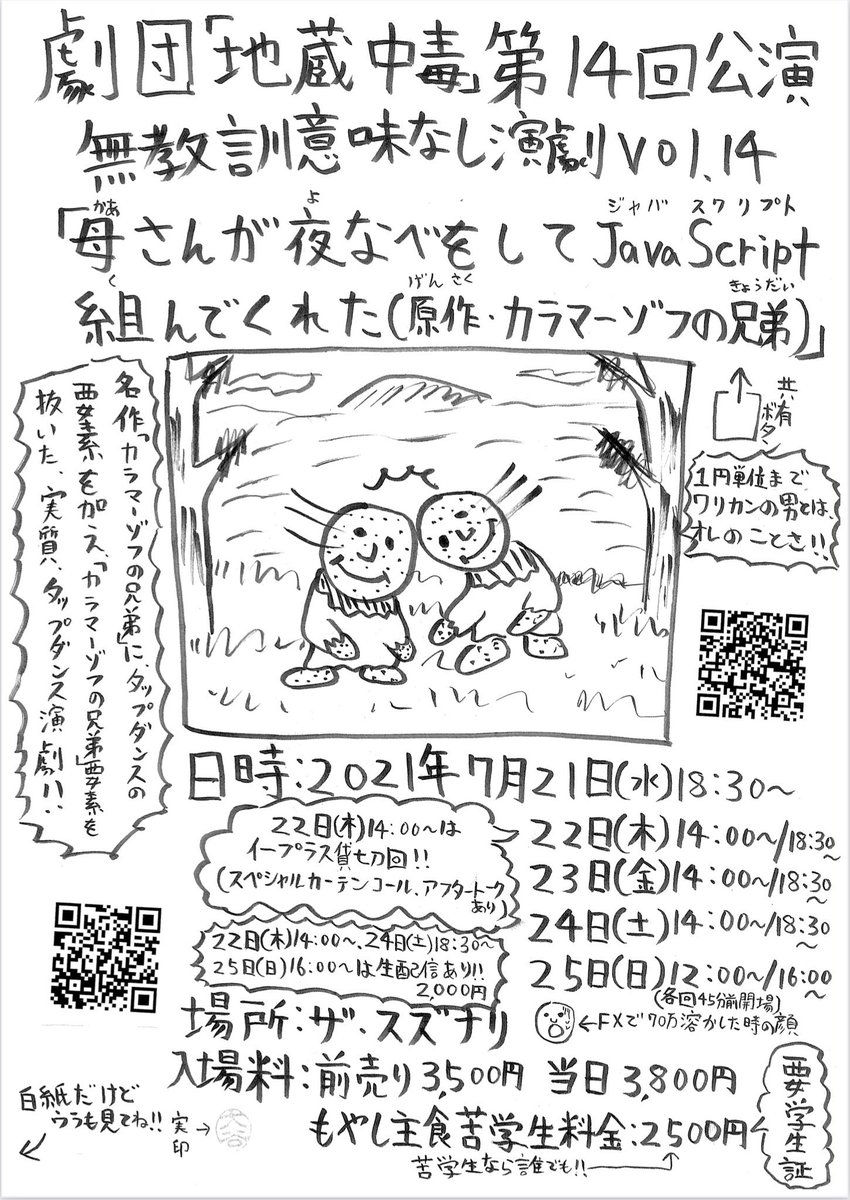 劇団「地蔵中毒」第14回公演
無教訓意味なし演劇vol.14
かあ よ ジャバ スクリプト
「母さんが夜なべをしてJavaScript
く げんさく きょうだい
組んでくれた(原作・カラマーゾフの兄弟)」
名作「カラマーゾフの兄弟」に、タップダンスの
要素を加え、「カラマーゾフの兄弟」要素を
抜いた、実質、タップダンス演劇!!
共有
ボタン
1円単位まで
ワリカンの男とは、
オレのことさ!!
日時:2021年7月21日(水)18:30〜
22日(木)14:00〜/18:30〜
23日(金)14:00〜/18:30〜
24日(土)14:00〜/18:30〜
25日(日)12:00〜/16:00〜
(各回45分前開場)
22日(木)14:00〜は
イープラス貸切回!!
(スペシャルカーテンコール、アフタートーク
あり)
22日(木)14:00〜、24日(土)18:30〜
25日(日)16:00〜は生配信あり!!
2,000円
場所:ザ・スズナリ
←FXで70万溶かした時の顔
入場料:前売り3,500円 当日3,800円
もやし主食苦学生料金:2500円
要学生証
苦学生なら誰でも!!
白紙だけど
ウラも見てね!!
実印→